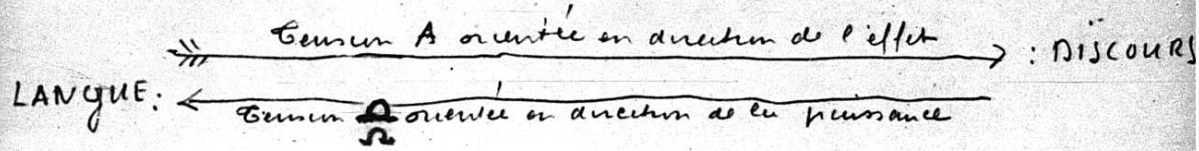 Tension A orientée en direction de l'effet
: DISCOURS
LANGUE:
Tension Ω orientée en direction de la puissance
Ω